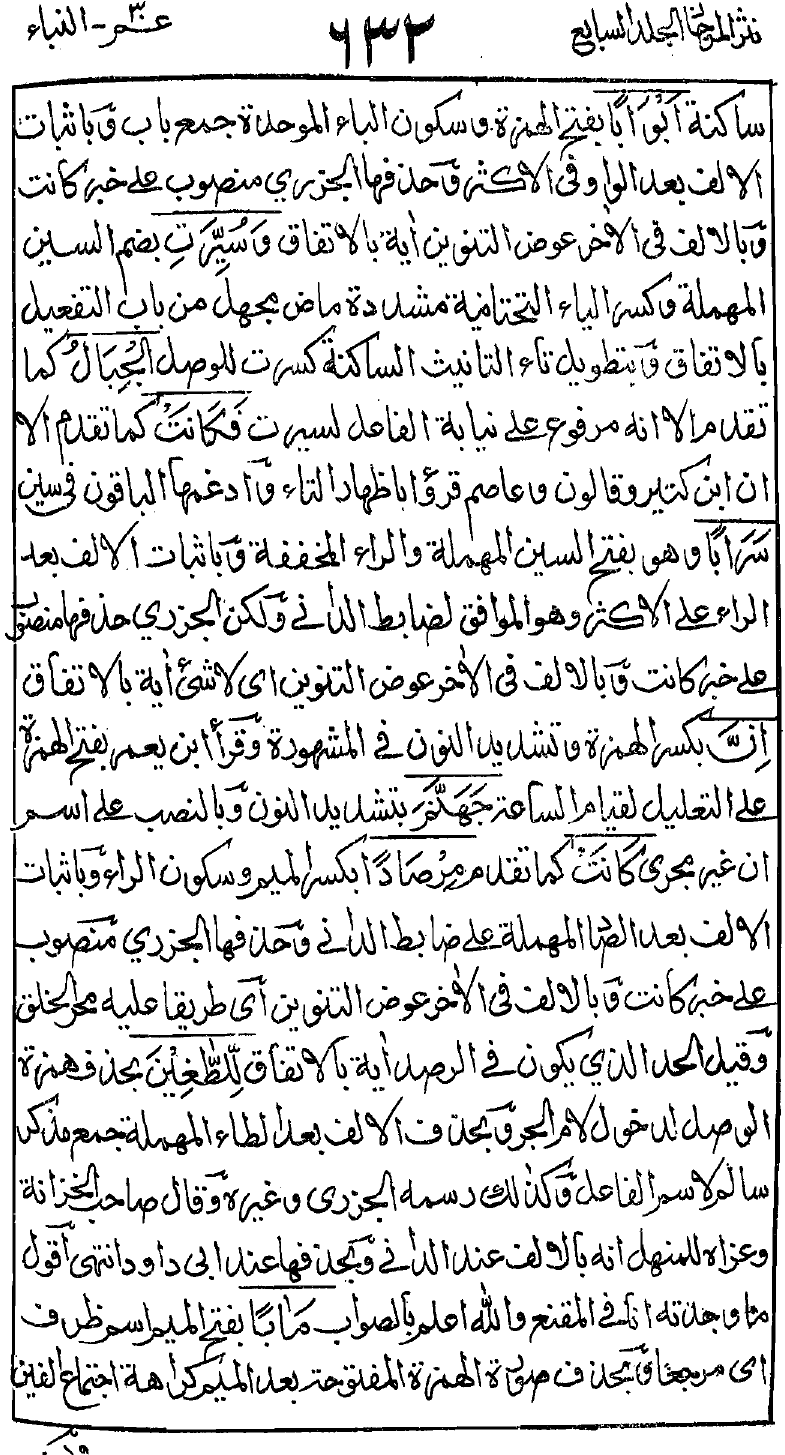 نثر المرجان المجلد السابع ٦٣٢ عم۳۰ - النباء
ساكنة اَبْوَابًا بفتح الهمزة وسكون الباء الموحدة جمع باب وَباثبات
الالف بعد الواو فى الاكثر وَحذفها الجزري منصوب على خبر كانت
وَبالالف فى الاٰخر عوض التنوين اٰية بالاتفاق وَسُيِّرَتِ بضم السين
المهملة وكسر الياء التحتانية مشددة ماض مجهل من باب التفعيل
بالاتفاق وَبتطويل تاء التانيث الساكنة كسرت للوصل الْجِبَالُ كما
تقدم الا انه مرفوع على نيابة الفاعل لسيرت فَكَانَتْ كما تقدم الا
ان ابن كثير وقالون وعاصم قرؤا باظهار التاء وَادغمها الباقون فى سين
سَرَابًا وهو بفتح السين المهملة والراء المخففة وَباثبات الالف بعد
الراء على الاكثر وهو الموافق لضابط الدانے وَلكن الجزري حذفها منصوب
على خبر كانت وَبالالف فى الاٰخر عوض التنوين اى لا شئ اٰية بالاتفاق
اِنَّ بكسر الهمزة وتشديد النون فے المشهورة وَقرأ ابن يعمر بفتح الهمزة
على التعليل لقيام الساعة جَهَنَّمَ بتشديد النون وَبالنصب على اسم
ان غير مجرى كَانَتْ كما تقدم مِرْصَادًا بكسر الميم وسكون الراء وَباثبات
الالف بعد الصاد المهملة على ضابط الدانے وَحذفها الجزري منصوب
على خبر كانت وَبالالف فى الاٰخر عوض التنوين اَى طريقا عليه ممر الخلق
وَقيل الحد الذي يكون فے الرصد اٰية بالاتفاق لِّلطّٰغِيْنَ بحذف همزة
الوصل لدخول لام الجر وَبحذف الالف بعد الطاء المهملة جمع مذكر
سالم لاسم الفاعل وَكذلك رسمه الجزرى وغيره وَقال صاحب الخزانة
وعزاه للمنهل انه بالالف عند الدانے وَبحذفها عند ابى داود انتهى اَقول
ما وجدته انا فے المقنع والله اعلم بالصواب مَاٰبًا بفتح الميم اسم ظرف
اى مرجعا وَبحذف صورة الهمزة المفتوحة بعد الميم كراهة اجتماع الفين